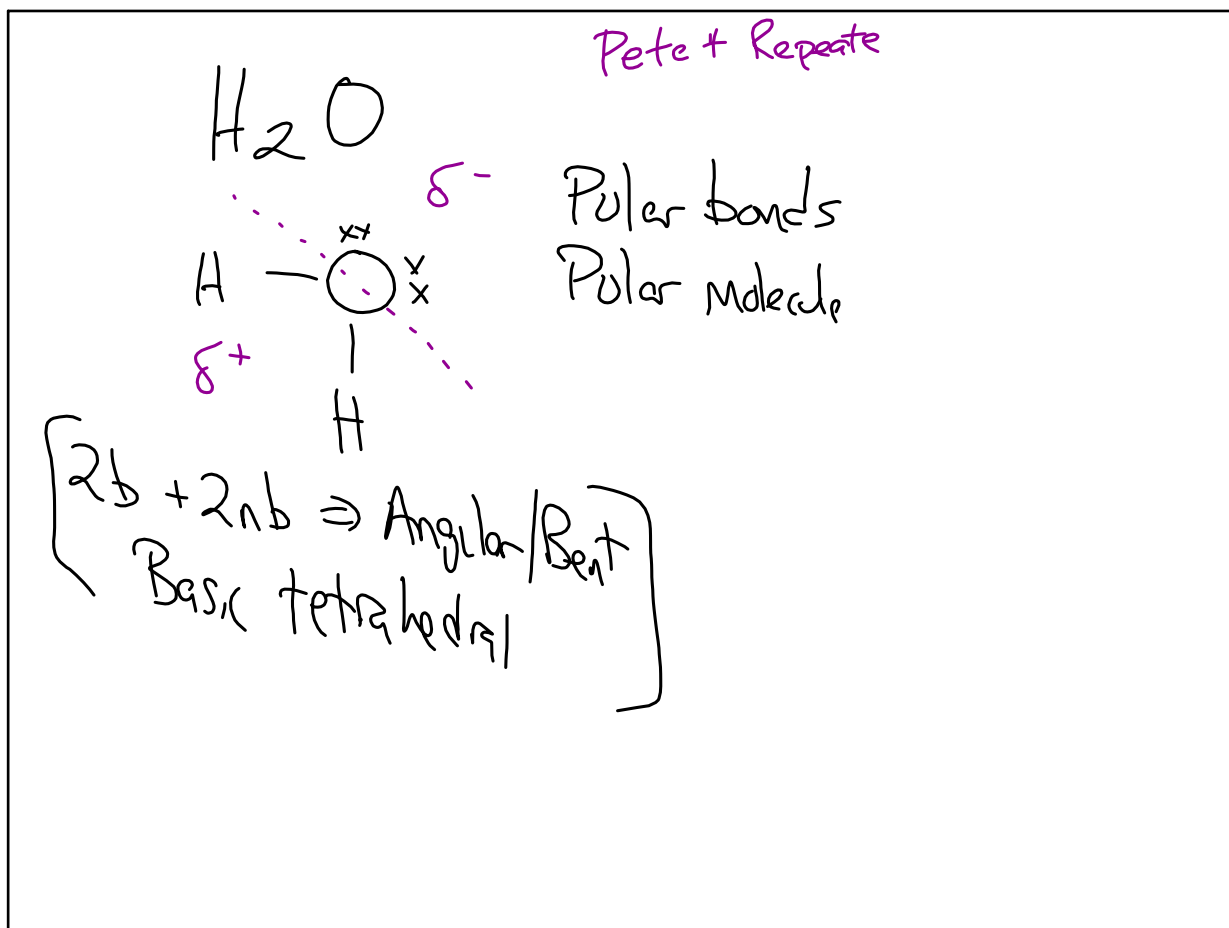 Pete + Repeate
H₂O
δ-
Polar bonds
Polar Molecule
xx
H — O x x
δ+
H
2b + 2nb ⇒ Angular/Bent
Basic tetrahedral